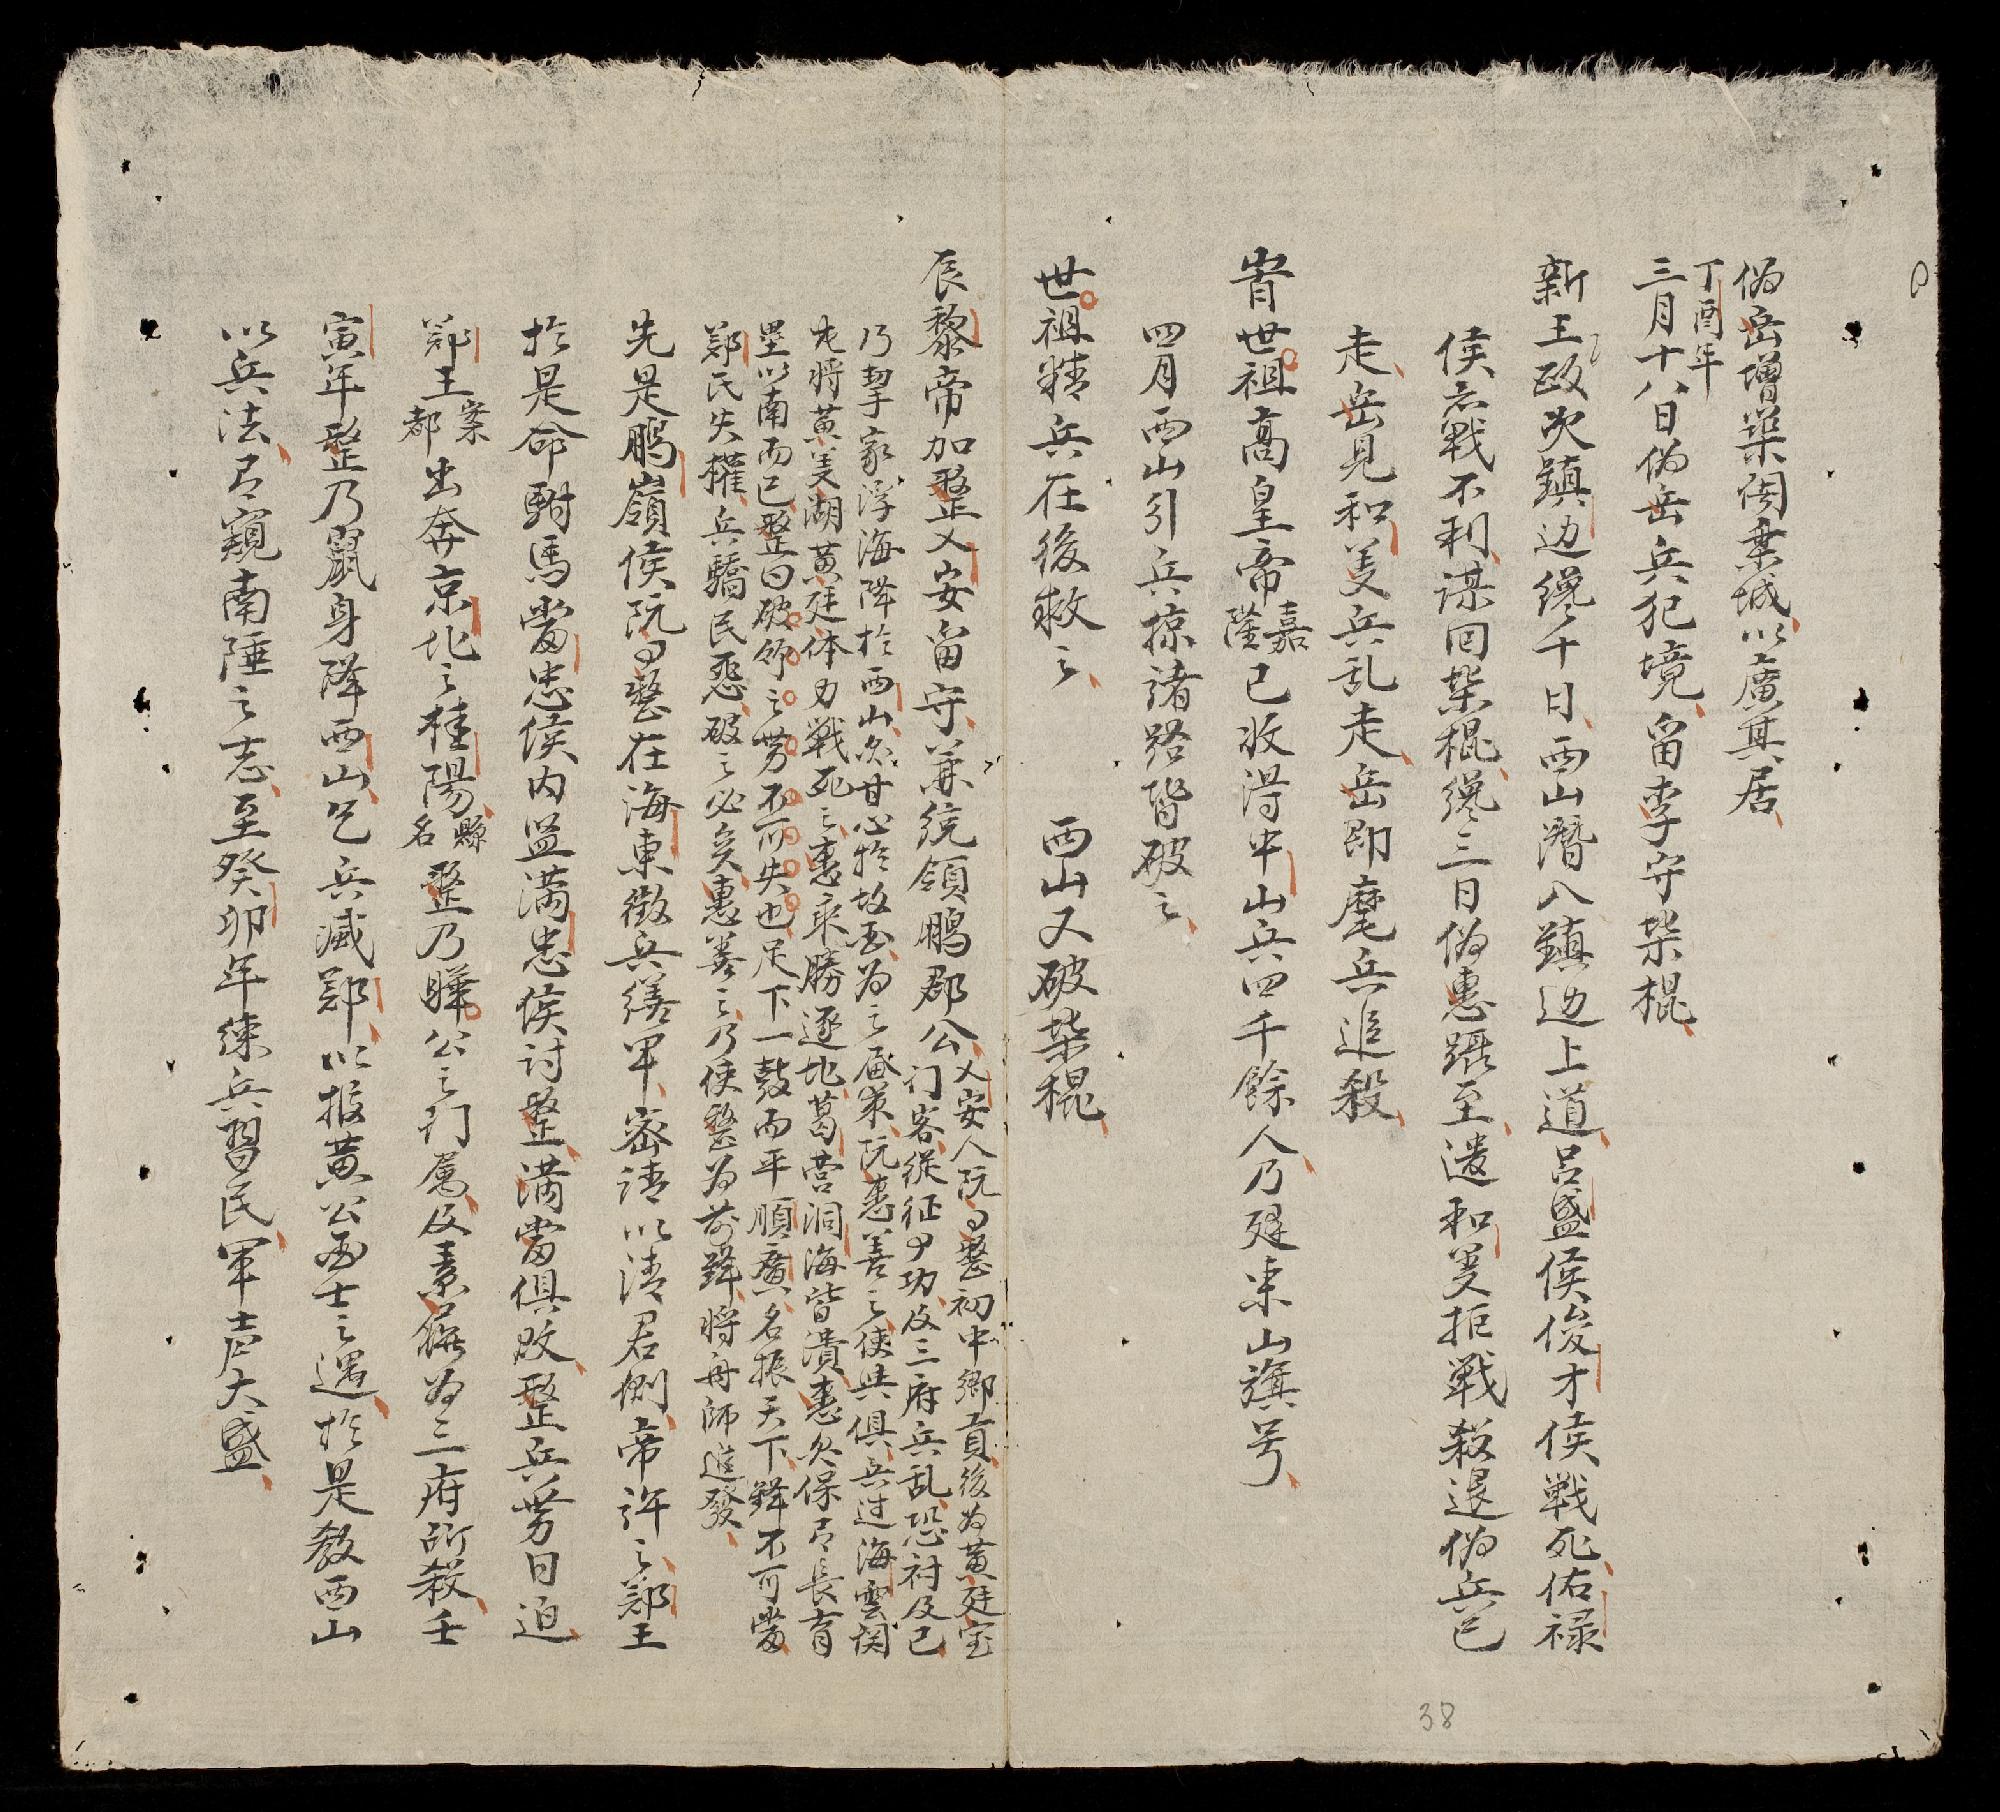 偽岳增築闍槃城以廣其居
丁酉年
三月十八日偽岳兵犯境留李守柴棍
新王政次鎮边纔千日西山潛入鎮边上道呂盛侯俊才侯戦死佑禄
侯忘戰不利謀囘柴棍纔三日偽惠躡至遣和美拒戰殺退偽兵已
走岳見和美兵乱走岳即麾兵追殺
旹世祖髙皇帝嘉隆已收得中山兵四千餘人乃建東山旗号
四月西山引兵掠諸路皆破之
世祖精兵在後救之 西山又破柴棍
辰黎帝加整乂安畄守兼統領鵬郡公
乂安人阮有整初中鄉貢後為黄廷宝
门客從征有功及三府兵乱恐祔及已
乃挈家浮海降於西山岳甘心於故玉为之屈策阮惠善之使典俱兵过海雲関
屯將黄美湖黄廷体力戦死之惠乘勝逐北葛营洞海皆潰惠欲保有長育
壘以南而已整曰破竹之势不可失也足下一鼓而平順廣名振天下鋒不可當
鄭民失權兵驕民惡破之必矣惠善之乃使整为前鋒將舟師進發
先是鵬嶺侯阮有整在海東徵兵繕甲密請以清君側帝许之鄭王
於是命駙馬當忠侯内监满忠侯討整满當俱敗整兵势日迫
鄭王案都出奔京北之桂陽縣名整乃曄公之门属及素蘓为三府所殺壬
寅年整乃鼠身降西山乞兵滅鄭以报黄公西士之遇於是教西山
以兵法有窺南陲之志至癸卯年練兵習民军声大盛
38